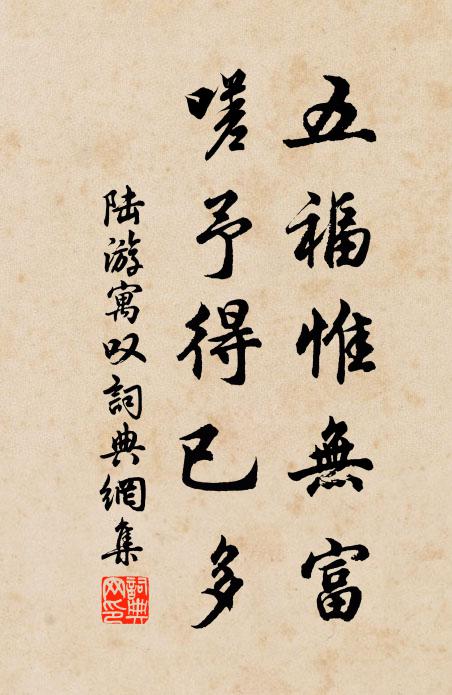 五福惟無富
嗟予得已多
陆游寓叹詞典網集
詞典網印